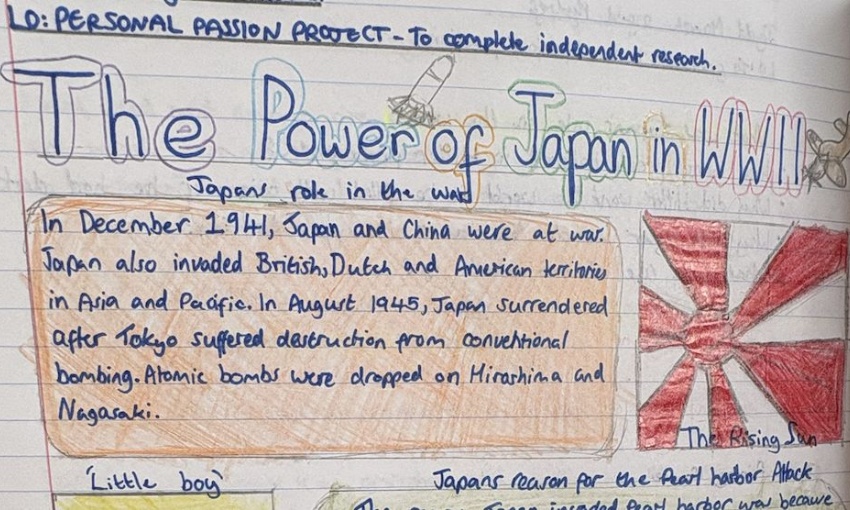 LO: PERSONAL PASSION PROJECT - To complete independent research.
The Power of Japan in WWII
Japans role in the war
In December 1941, Japan and China were at war.
Japan also invaded British, Dutch and American territories
in Asia and Pacific. In August 1945, Japan surrendered
after Tokyo suffered destruction from conventional
bombing. Atomic bombs were dropped on Hiroshima and
Nagasaki.
The Rising Sun
'Little boy'
Japans reason for the Pearl harbor Attack
Japan invaded Pearl harbor was because